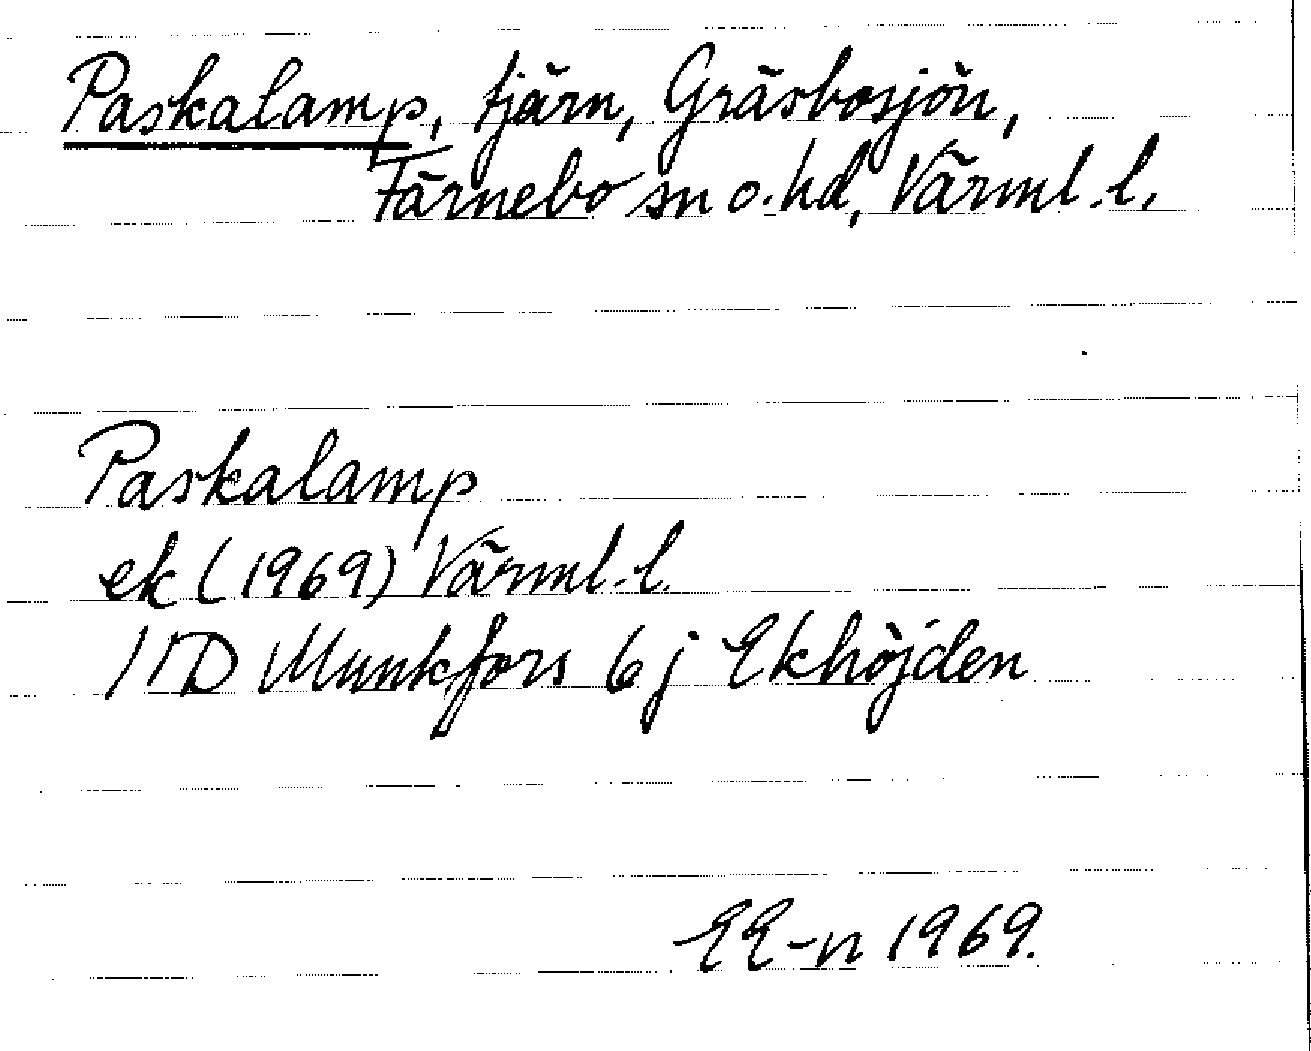 Paskalamp, tjärn, Gräsbosjön,
Färnebo sn o. hd, Värml. l.
Paskalamp
ek (1969) Värml. l.
11D Munkfors 6 j Ekhöjden
EE-n 1969.